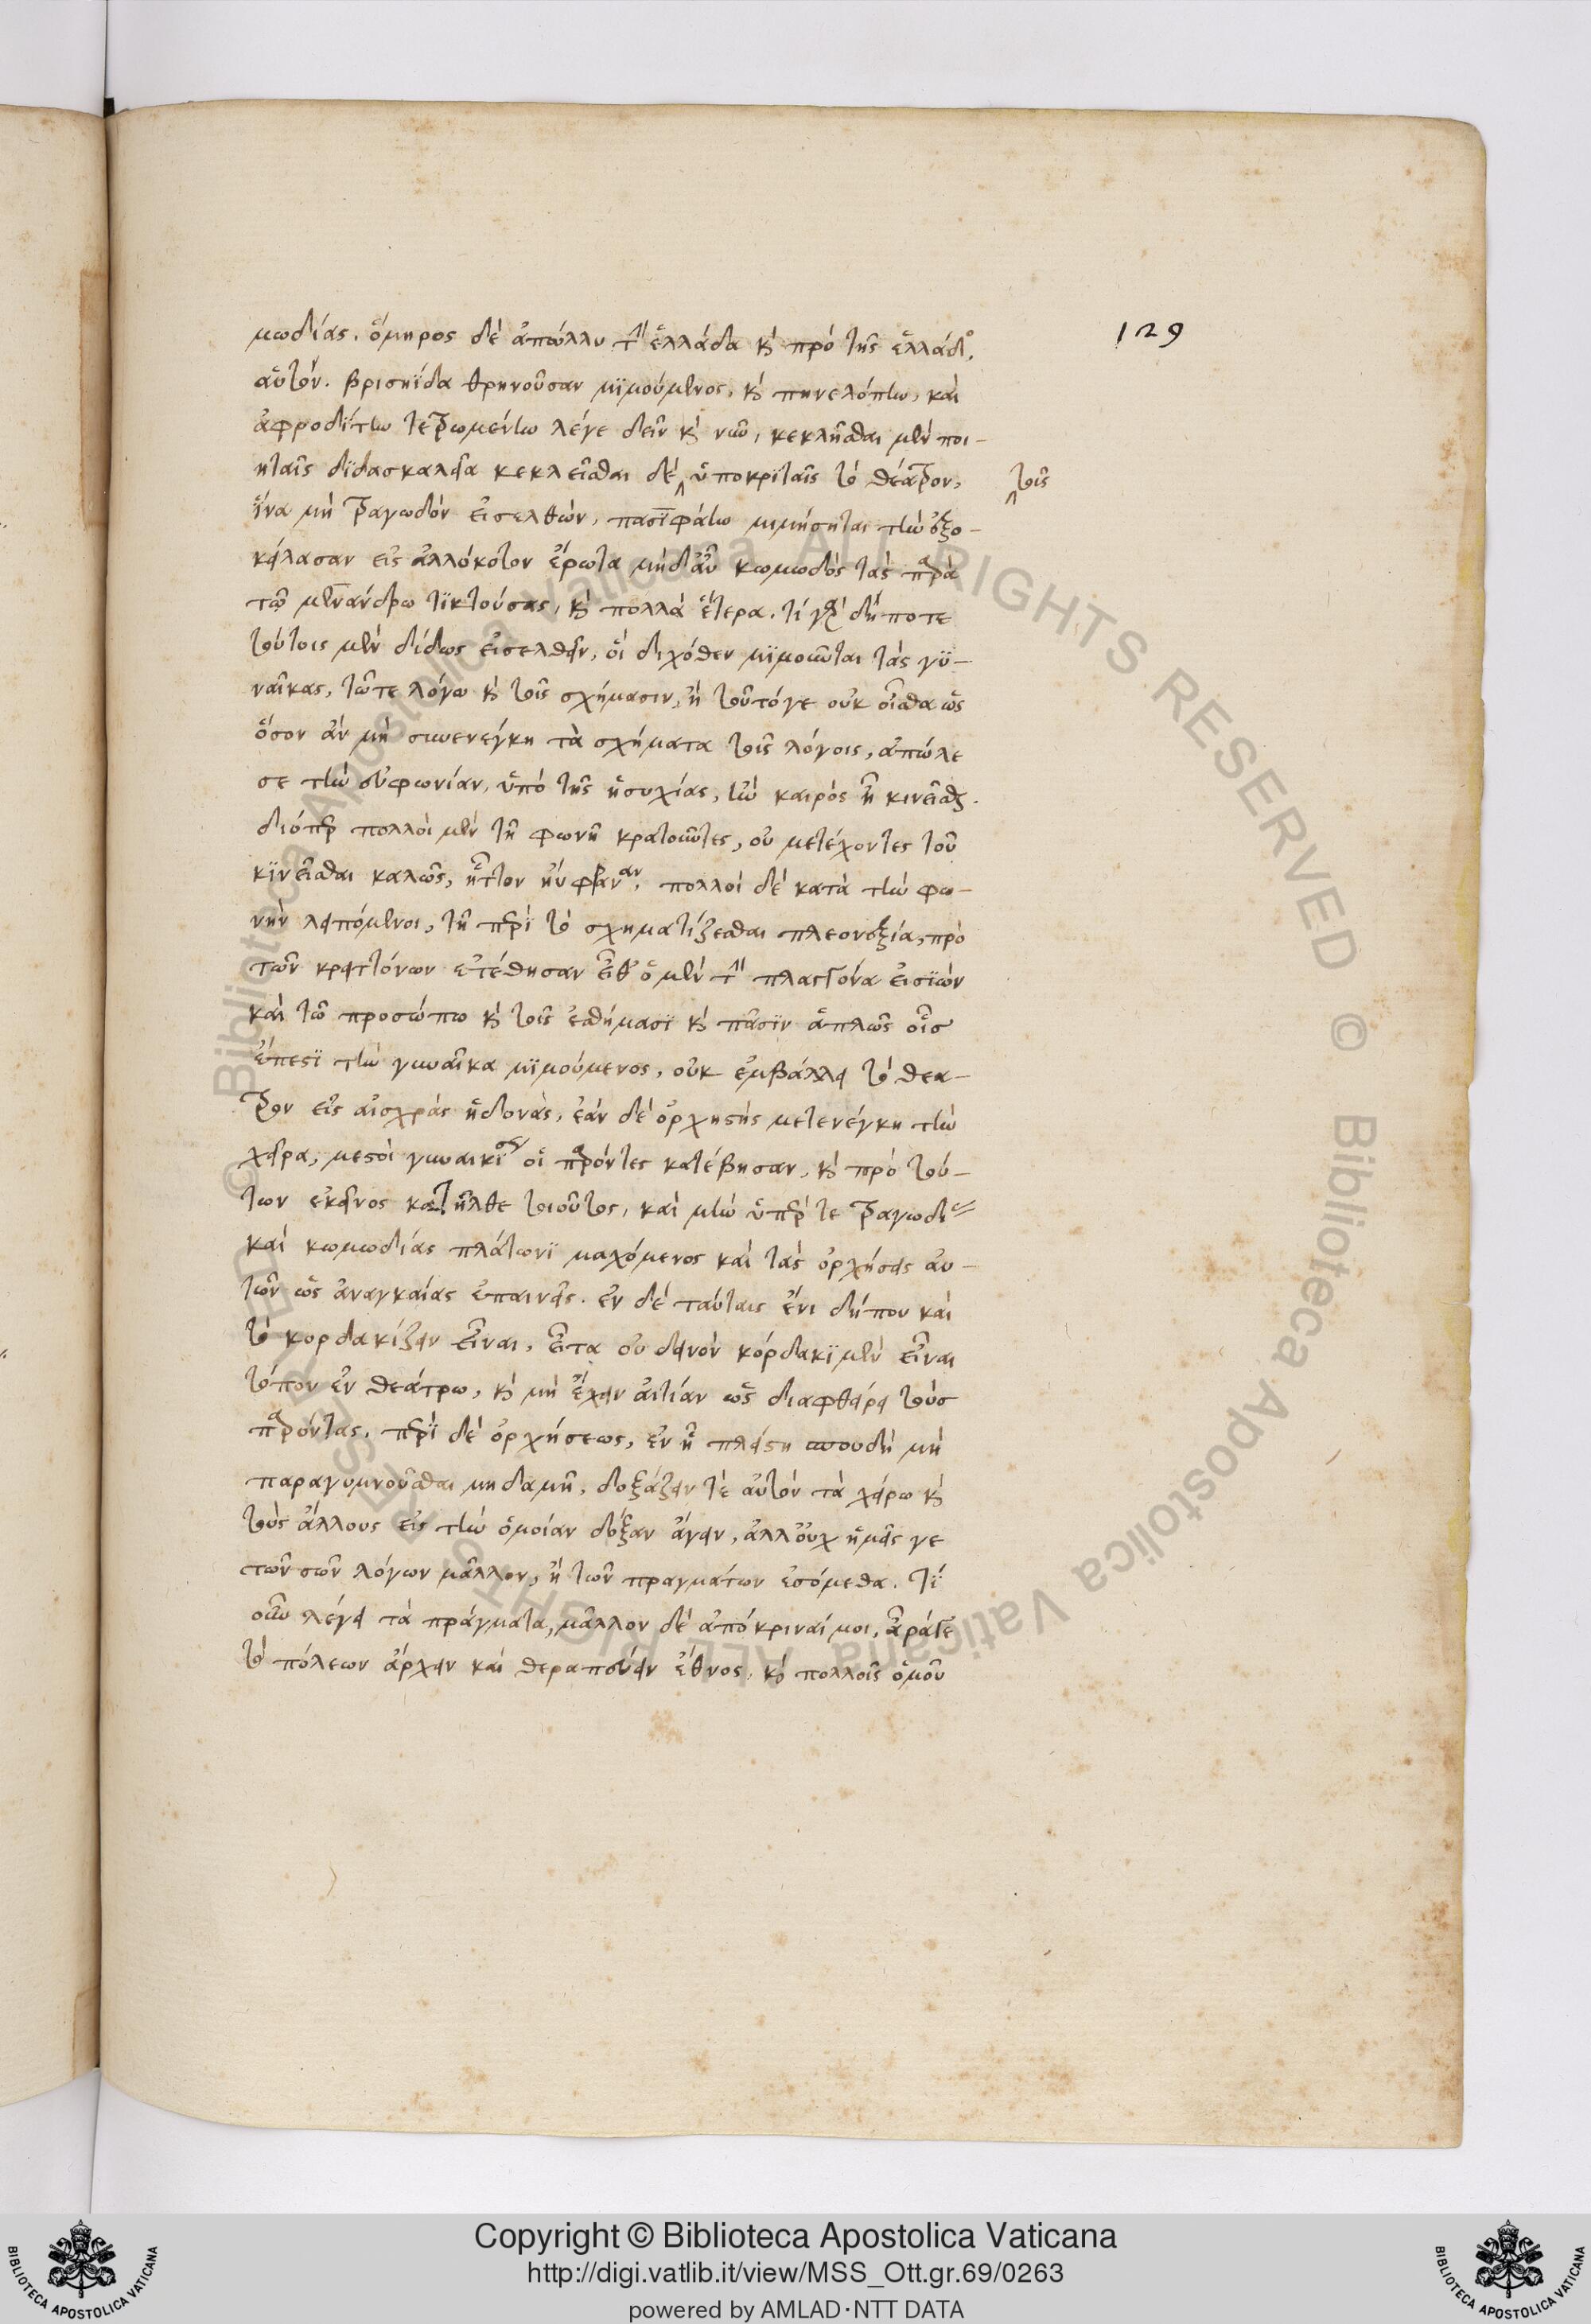 129
μωδίας. ὅμηρος δὲ ἀπώλλυ τ(ὴν) ἑλλάδα κ(αὶ) πρὸ τῆς ἑλλάδο(ς)
αὑτόν. βρισηΐδα θρηνοῦσαν μϊμούμενος, κ(αὶ) πηνελόπην, καὶ
ἀφροδίτην τετρωμένην λέγε δεῖν κ(αὶ) νῦν, κεκλῆσθαι μὲν ποι-
ηταῖς διδασκαλεῖα κεκλεῖσθαι δὲ ὑποκριταῖς τὸ θέατρον,
τοῖς
ἵνα μὴ τραγωδὸν εἰσελθών, πασϊφάην μιμήσηται τὴν ἐξο-
κείλασαν εἰς ἀλλόκοτον ἔρωτα μὴδ' ἂν κωμωδὸς τὰς παρὰ
τῶ μενάνδρω τϊκτούσας, κ(αὶ) πολλὰ ἕτερα. τί γὰρ δήποτε
τούτοις μὲν δίδως εἰσελθεῖν, οἳ διχόθεν μϊμοῦνται τὰς γϋ-
ναῖκας, τῶτε λόγω κ(αὶ) τοῖς σχήμασιν, ἢ τοῦτόγε οὐκ οἶσθα ὡς
ὅσον ἂν μὴ συνενέγκη τὰ σχήματα τοῖς λόγοις, ἀπώλε
σε τὴν συμφωνίαν, ὑπὸ τῆς ἡσυχίας, ὧν καιρὸς ἦ κινεῖσθαι.
διόπερ πολλοὶ μὲν τῆ φωνῆ κρατοῦντες, οὐ μετέχοντες τοῦ
κϊνεῖσθαι καλῶς, ἧττον ηὔφραναν, πολλοὶ δὲ κατὰ τὴν φω-
νὴν λειπόμενοι, τῆ περὶ τὸ σχηματίζεσθαι πλεονεξία, πρὸ
τῶν κρειττόνων ἐτέθησαν εἶθ' ὁ μὲν τ(ὴν) πλαγγόνα εἰσϊὼν
καὶ τῶ προσώπω κ(αὶ) τοῖς ἐσθήμασϊ κ(αὶ) πᾶσϊν ἁπλῶς οἷσ
ἔπεστϊ τὴν γυναῖκα μϊμούμενος, οὐκ ἐμβάλλει τὸ θεα-
τρον εἰς αἰσχρὰς ἡδονάς, ἐὰν δὲ ὀρχηστὴς μετενέγκη τὴν
χεῖρα, μεστοὶ γυναικϊ οἱ παρόντες κατέβησαν, κ(αὶ) πρὸ τού-
των ἐκεῖνος κατῆλθε τοιοῦτος, καὶ μὴν ὑπέρ τε τραγωδίας
καὶ κωμωδίας πλάτωνϊ μαχόμενος καὶ τὰς ὀρχήσεις αὐ-
τῶν ὡς ἀναγκαίας ἐπαινεῖς. ἐν δὲ ταύταις ἔνι δήπου καὶ
τὸ κορδακίζειν εἶναι, εἶτα οὐ δεινὸν κόρδακϊ μὲν εἶναι
τόπον ἐν θεάτρω, κ(αὶ) μὴ ἔχειν αἰτίαν ὡς διαφθείρει τοὺσ
παρόντας, περὶ δὲ ὀρχήσεως, ἐν ἧ πλείστη σπουδὴ μὴ
παραγυμνοῦσθαι μηδαμῆ, δοξάζειν τὲ αὐτὸν τὰ χείρω κ(αὶ)
τοὺς ἄλλους εἰς τὴν ὁμοίαν δόξαν ἄγειν, ἀλλ' οὐχ ἡμεῖς γε
τῶν σῶν λόγων μᾶλλον, ἢ τῶν πραγμάτων ἐσόμεθα. τί
οὖν λέγει τὰ πράγματα, μᾶλλον δὲ ἀπόκριναί μοι, ἆράγε
τὸ πόλεων ἄρχειν καὶ θεραπεύειν ἔθνος, κ(αὶ) πολλοῖς ὁμοῦ
Copyright © Biblioteca Apostolica Vaticana
http://digi.vatlib.it/view/MSS_Ott.gr.69/0263
powered by AMLAD·NTT DATA